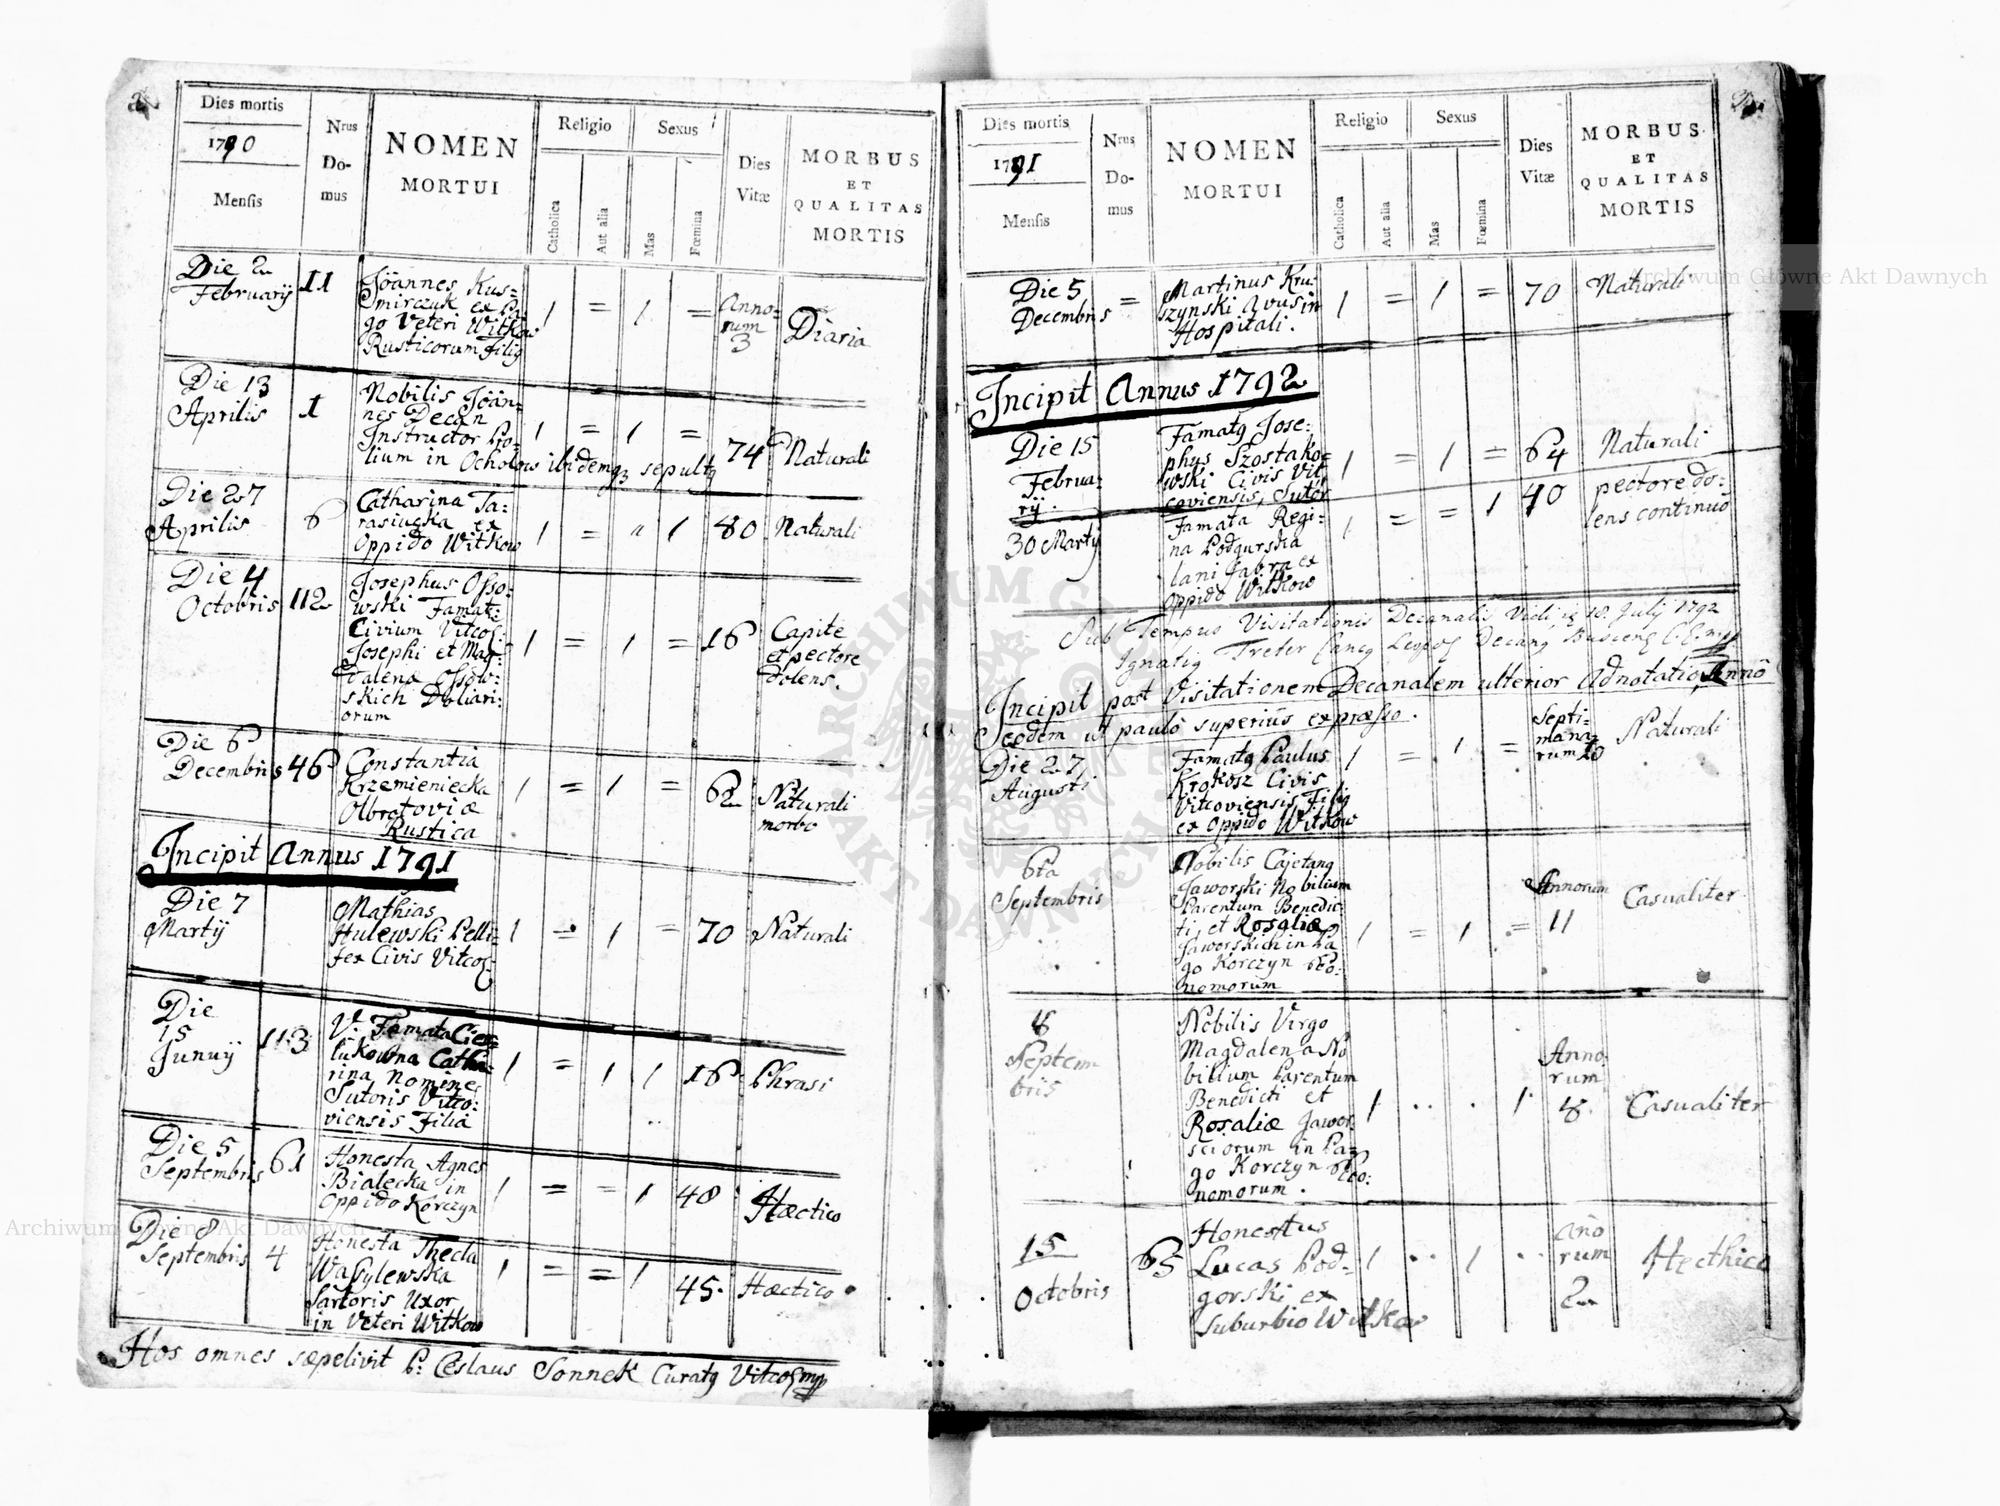 Dies mortis
1790
Mensis
Nrus
Do-
mus
NOMEN
MORTUI
Religio
Catholica
Aut alia
Sexus
Mas
Fœmina
Dies
Vitæ
MORBUS
ET
QUALITAS
MORTIS
Die 2
Februarÿ
11
Jöannes Kus-
mirczuk ex Pa-
go Veteri Witkow
Rusticorum filig
1 = 1 =
Anno-
rum
3
Diaria
Die 13
Aprilis
1
Nobilis Jöan-
nes Decan
Instructor Pro-
lium in Ocholow ibidemq3 sepultg
1 = 1 =
74
Naturali
Die 27
Aprilis
6
Catharina Ta-
rasiucka ex
Oppido Witkow
1 = " 1
80
Naturali
Die 4
Octobris
112
Josephus Osso-
wski Famat:
Civium Vitcoſ:
Josephi et Mag-
dalena Ossow-
skich Doliari-
orum
1 = 1 =
16
Capite
et pectore
dolens.
Die 6
Decembris
46
Constantia
Krzemieniecka
Olbrotoviæ
Rustica
1 = 1 =
62
Naturali
morbo
Incipit Annus 1791
Die 7
Martÿ
Mathias
Hulewski Pelli-
fex Civis Vitcoſ:
1 = 1 =
70
Naturali
Die
15
Junuÿ
113
V. Famata
Catha-
rina Nomine
Sutoris Vitco-
viensis Filia
1 = 1 1
16
Phrasi
Die 5
Septembris
61
Honesta Agnes
Bialecka in
Oppido Korczyn
1 = = 1
48
Hæctico
Die 8
Septembris
4
Honesta Thecla
Wasylewska
Sartoris Uxor
in Veteri Witkow
1 = = 1
45.
Hæctico
Hos omnes sæpelivit P: Ceslaus Sonnek Curatg Vitcoſ mp
Dies mortis
1791
Mensis
Nrus
Do-
mus
NOMEN
MORTUI
Religio
Catholica
Aut alia
Sexus
Mas
Fœmina
Dies
Vitæ
MORBUS
ET
QUALITAS
MORTIS
Die 5
Decembris
=
Martinus Kru-
szynski Avus in
Hospitali.
1 = 1 =
70
Naturali
Incipit Annus 1792
Die 15
Februa-
rÿ.
Famatg Jose-
phus Szostako-
wski Civis Vit-
coviensis, Sutor
1 = 1 =
64
Naturali
30 Martÿ
Famata Regi-
na Podgurska
lani fabra ex
Oppido Witkow
1 = = 1
40
pectore do-
lens continuô
Sub Tempus Visitationis Decanalis Vidi 18. Julÿ 1792
Ignatig Treter Decang
Incipit post Visitationem Decanalem ulterior Adnotatio, Annô
eodem ut paulô superiùs expræsso.
Die 27
Augusti
Famatg Paulus
Krokosz Civis
Vitcoviensis Filig
ex Oppido Witkow
1 = 1 =
Septi-
mana-
rum 10
Naturali
6ta
Septembris
Nobilis Cajetang
Jaworski Nobilium
Parentum Benedic-
ti, et Rosaliæ
Jaworskich in Pa-
go Korczyn Œco-
nomorum
1 = 1 =
Annorum
11
Casualiter
8
Septem
bris
Nobilis Virgo
Magdalena No
bilium Parentum
Benedicti et
Rosaliæ Jawor-
sciorum in Pa-
go Korczyn Œco:
nomorum.
1 .. . 1
Anno-
rum
8.
Casualiter
15
Octobris
65
Honestus
Lucas Pod-
gorski ex
Suburbio Witkow
1 .. 1 ..
Ano
rum
2
Hecthica
Archiwum Główne Akt Dawnych
Archiwum Główne Akt Dawnych
ARCHIWUM GŁÓWNE
AKT DAWNYCH